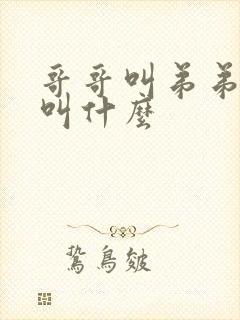 哥哥叫弟弟
叫什麼
鷙鳥皴